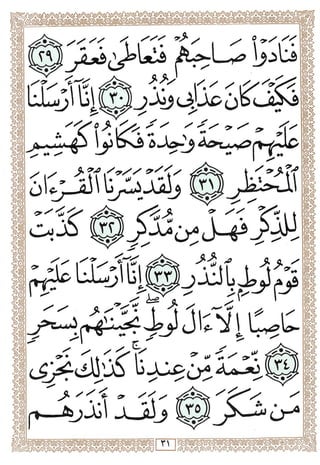 فَنَادَوْا۟ صَاحِبَهُمْ فَتَعَاطَىٰ فَعَقَرَ ٢٩
فَكَيْفَ كَانَ عَذَابِى وَنُذُرِ ٣٠ إِنَّآ أَرْسَلْنَا
عَلَيْهِمْ صَيْحَةً وَٰحِدَةً فَكَانُوا۟ كَهَشِيمِ
ٱلْمُحْتَظِرِ ٣١ وَلَقَدْ يَسَّرْنَا ٱلْقُرْءَانَ
لِلذِّكْرِ فَهَلْ مِن مُّدَّكِرٍ ٣٢ كَذَّبَتْ
قَوْمُ لُوطٍۭ بِٱلنُّذُرِ ٣٣ إِنَّآ أَرْسَلْنَا عَلَيْهِمْ
حَاصِبًا إِلَّآ ءَالَ لُوطٍ ۖ نَّجَّيْنَٰهُم بِسَحَرٍ
٣٤ نِّعْمَةً مِّنْ عِندِنَا ۚ كَذَٰلِكَ نَجْزِى
مَن شَكَرَ ٣٥ وَلَقَدْ أَنذَرَهُم
٣١